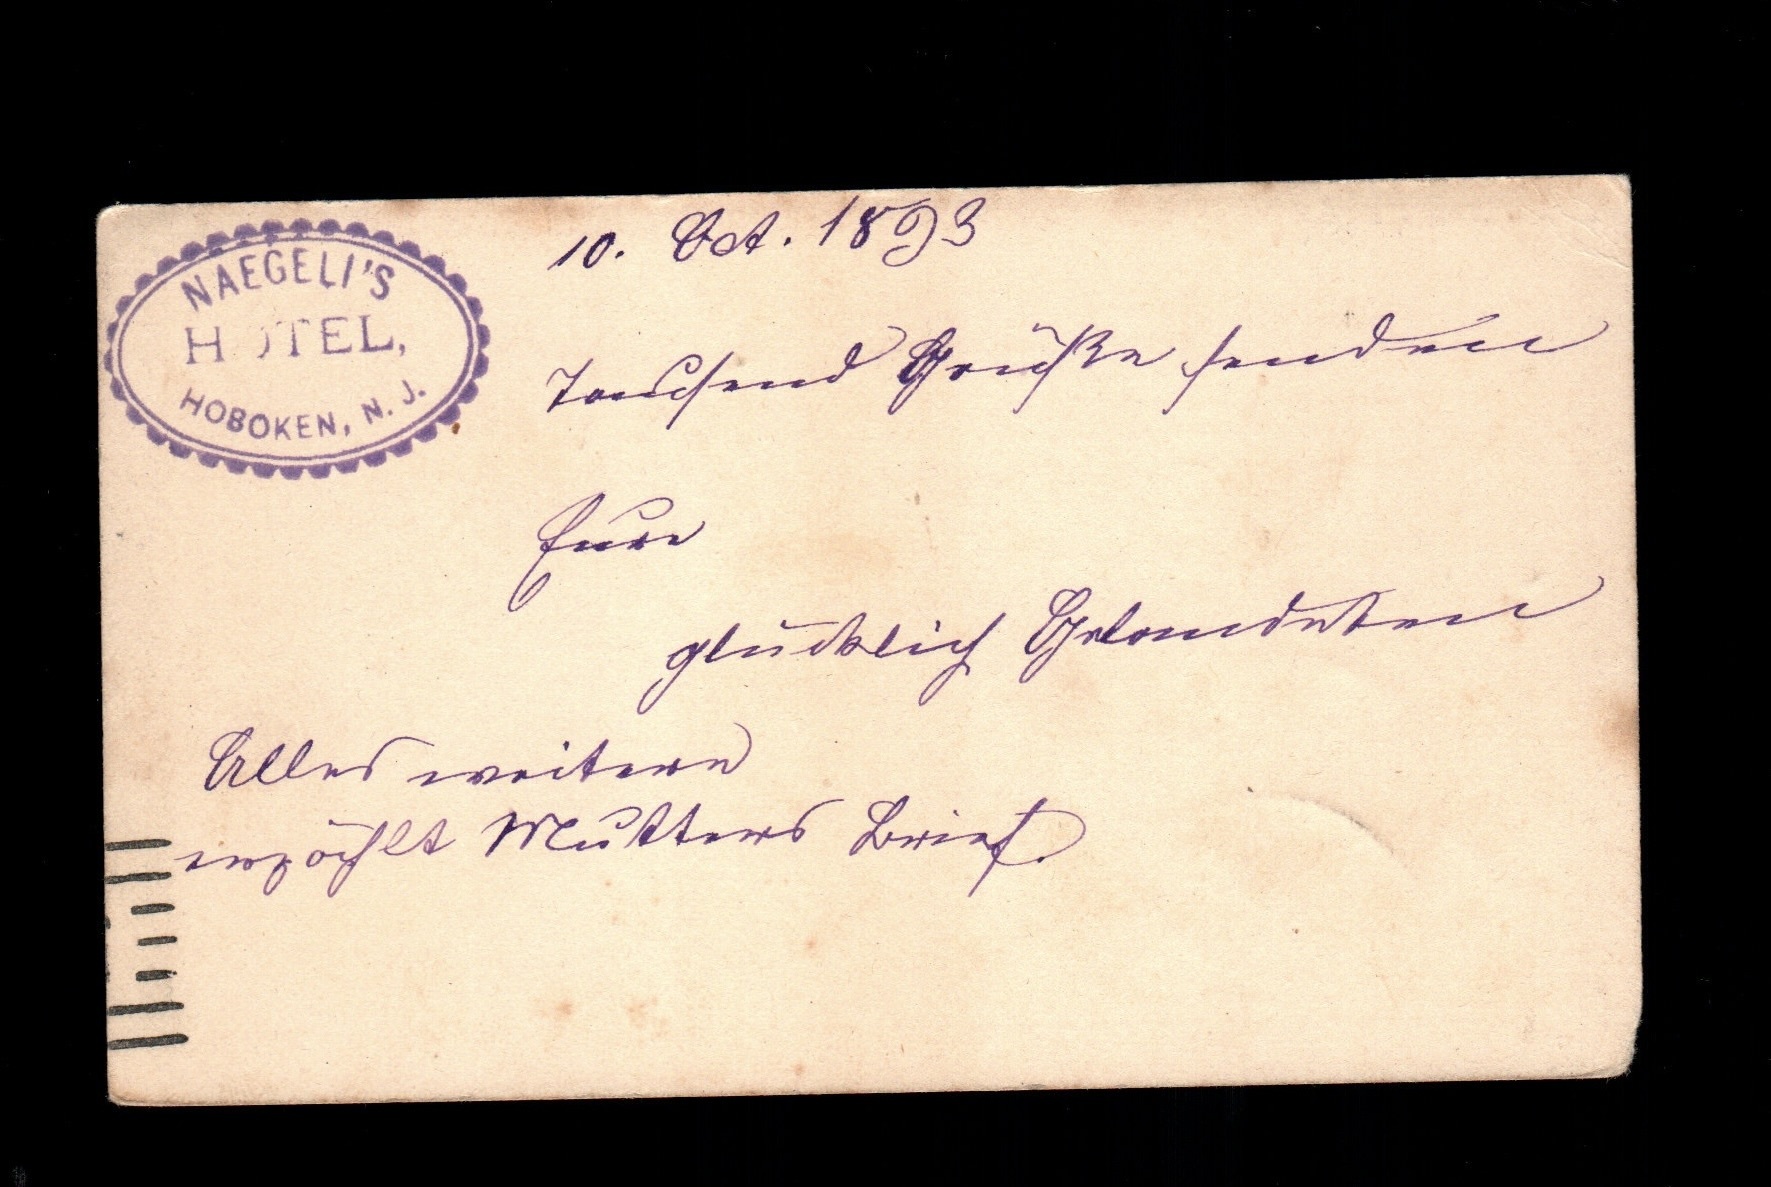 NAEGELI'S
HOTEL,
HOBOKEN, N. J.
10. Oct. 1893
Tausend Grüße senden
Eure
glücklich Gelandeten
Alles weitere
erzählt Mutters Brief.